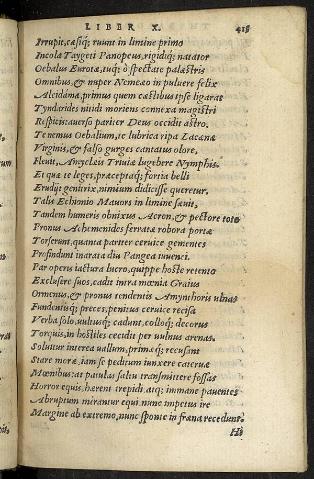 LIBER X. 419
Irrupit, casiq; ruunt in limine primo
Incola Taygeti Panopeus, rigidiq; natator
Oebalus Eurotæ, tuq; ô spectate palæstris
Omnibus, & nuper Nemeæo in puluere felix
Alcidama, primus quem cæstibus ipse ligarat
Tyndarides nitidi moriens connexa magistri
Respicis: auerso pariter Deus occidit astro.
Te nemus Oebalium, te lubrica ripa Lacænæ
Virginis, & falso gurges cantatus olore,
Fleuit, Amyclæis Triuiæ lugebere Nymphis.
Et quæ te leges, præceptaq; fortia belli
Erudijt genitrix, nimium didicisse queretur.
Talis Echionio Mauors in limine sæuit,
Tandem humeris obnixus Acron, & pectore toto
Pronus Achemenides ferrata robora portæ
Torserunt, quanta pariter ceruice gementes
Profindunt inarata diu Pangea iuuenci.
Par operis iactura lucro, quippe hoste retento
Exclusere suos, cadit intra mœnia Graius
Ormenus, & pronus tendentis Amynthoris ulnas
Fundentisq; preces, penitus ceruice recisa
Verba solo, uultusq; cadunt, colloq; decorus
Torquis, in hostiles cecidit per uulnus arenas.
Soluitur interea uallum, primæq; recusant
Stare moræ, iam se peditum iunxere cateruæ
Mœnibus: at patulas saltu transmittere fossas
Horror equis, hærent trepidi atq; immane pauentes
Abruptum mirantur equi, nunc impetus ire
Margine ab extremo, nunc sponte in fræna recedunt.
Hi